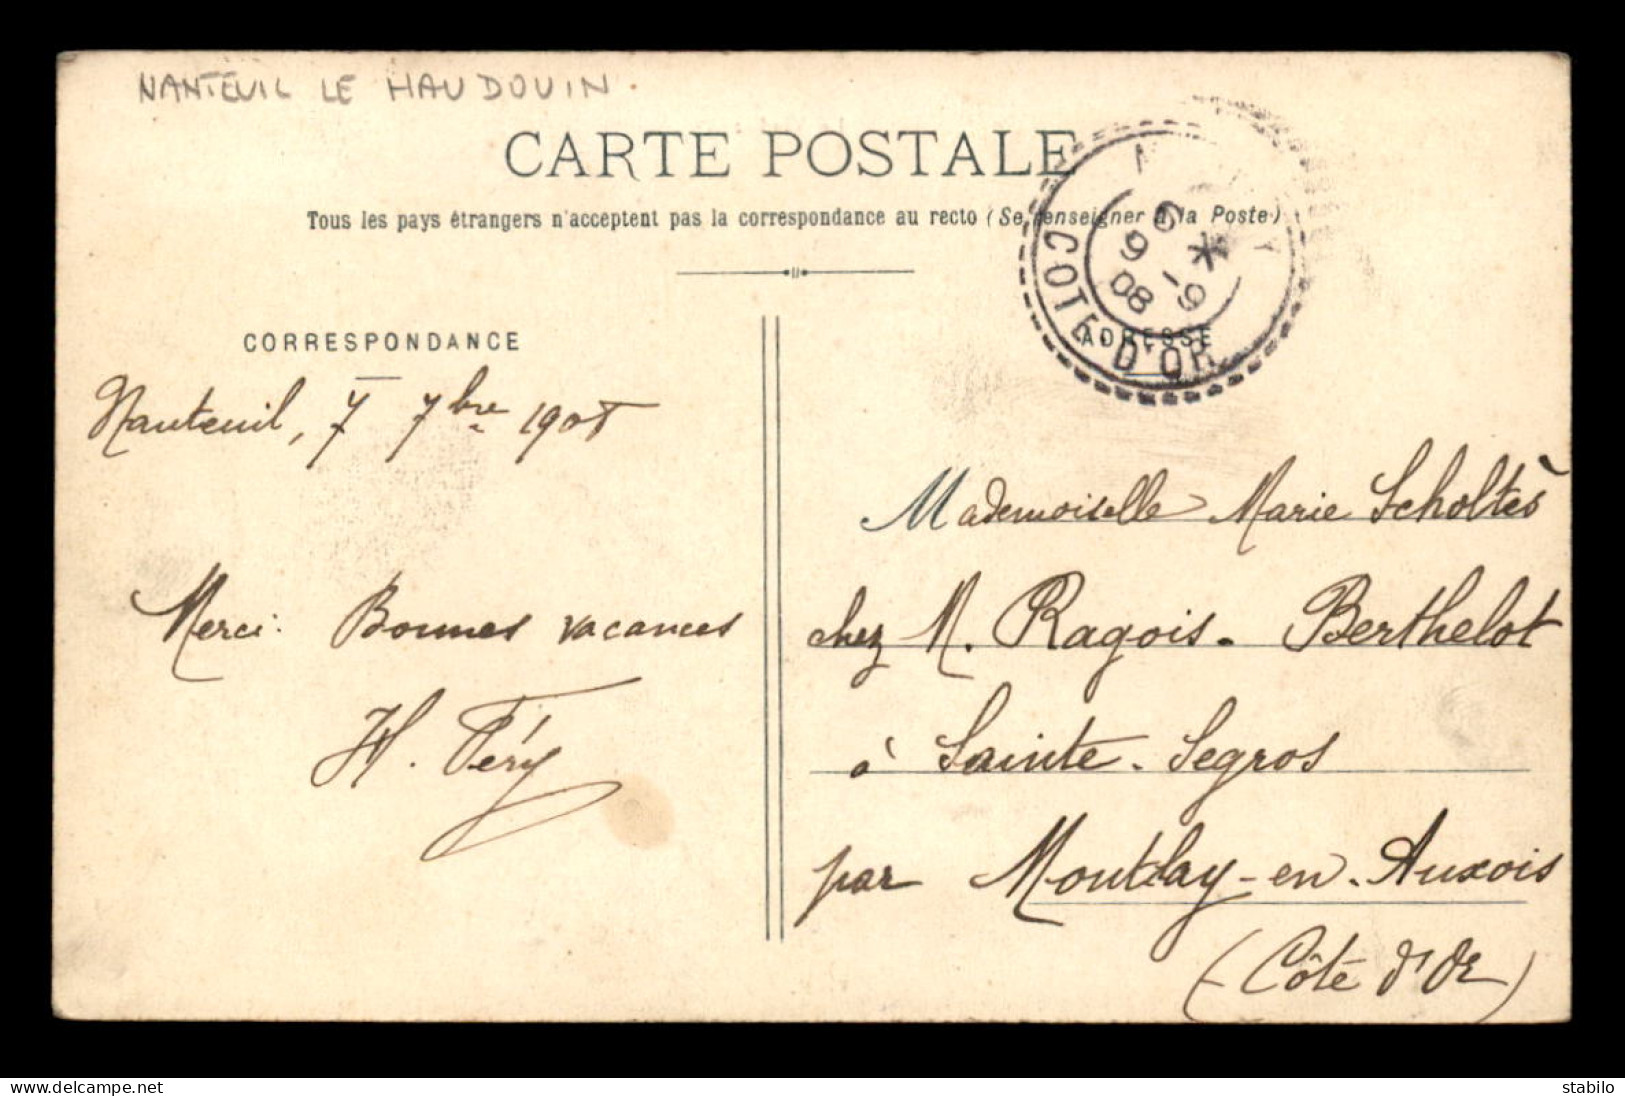 NANTEUIL LE HAUDOUIN
CARTE POSTALE
Tous les pays étrangers n'acceptent pas la correspondance au recto (Se renseigner à la Poste)
COTE-D'OR
6 * 9-9 08
CORRESPONDANCE
ADRESSE
Nanteuil, 7 7bre 1908
Merci. Bonnes vacances
H. Féry
Mademoiselle Marie Scholtès
chez M. Ragois-Berthelot
à Sainte-Segros
par Montlay-en-Auxois
(Côte d'Or)
delcampe.net
stabilo